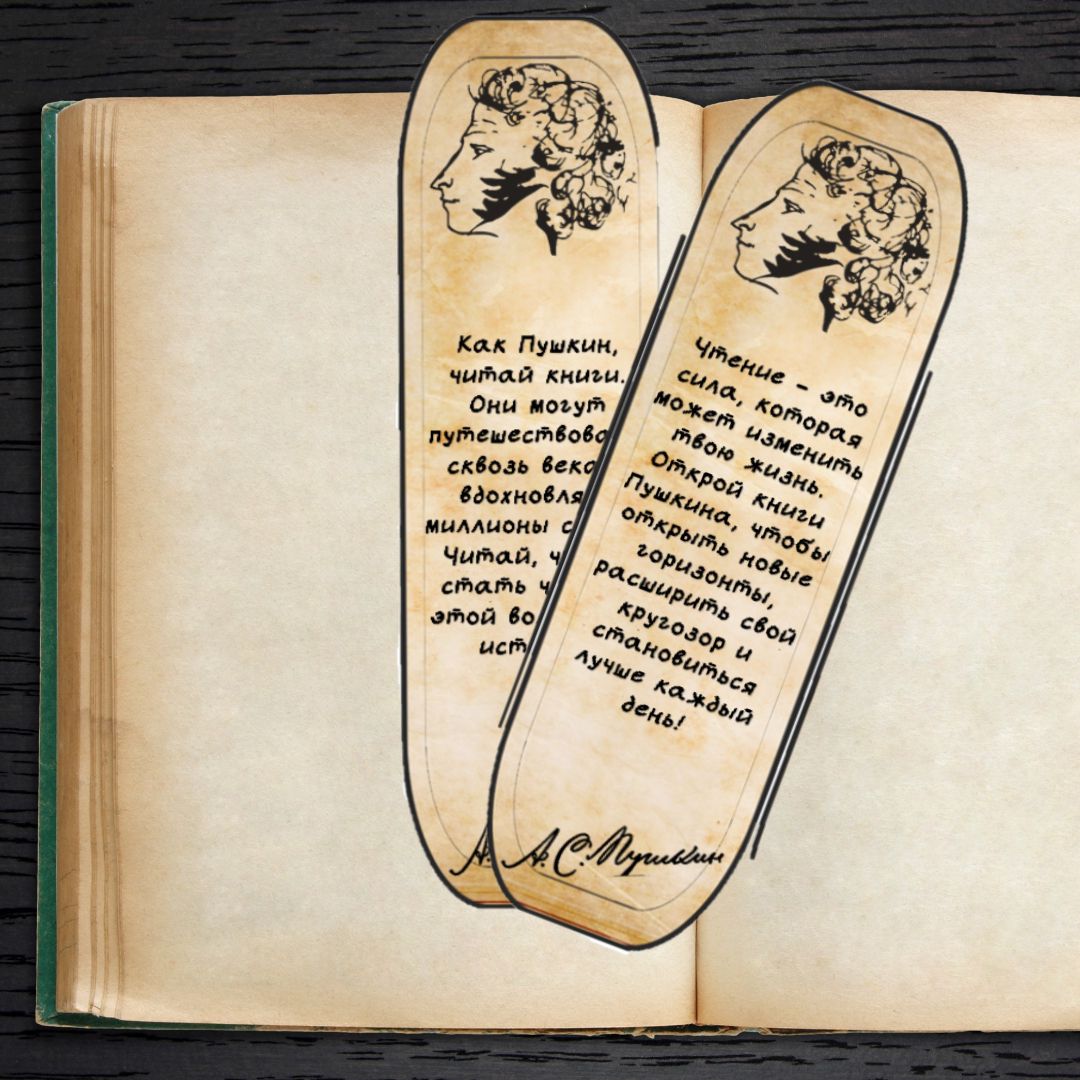 Как Пушкин,
читай книги.
Они могут
сквозь
миллионы
Читай,
стать
этой
Чтение - это
сила, которая
может изменить
твою жизнь.
Открой книги
Пушкина, чтобы
открыть новые
горизонты,
расширить свой
кругозор и
становиться
лучше каждый
день!
А. С. Пушкин